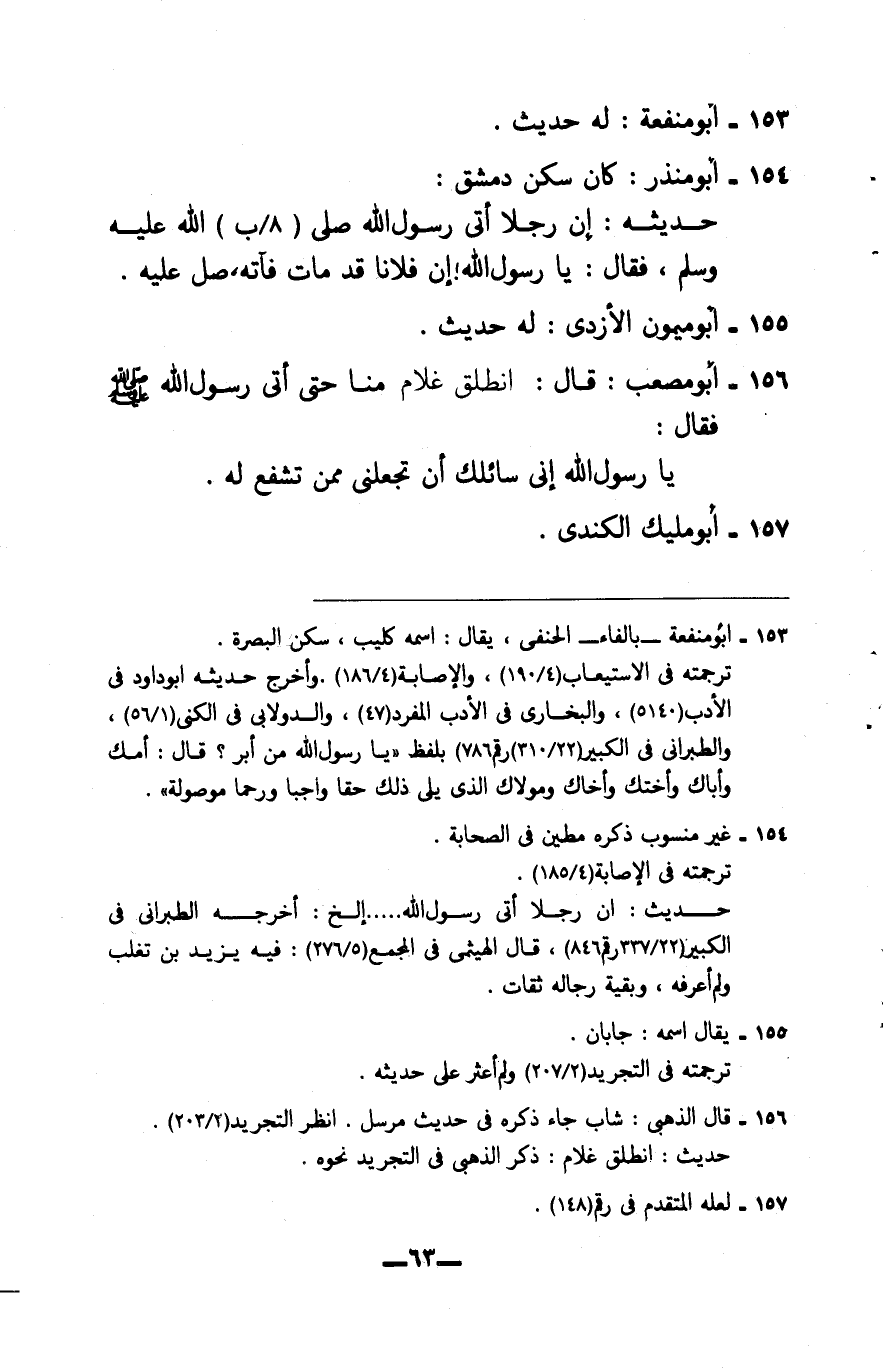 ١٥٣ ـ أبومنفعة : له حديث .
١٥٤ ـ أبومنذر : كان سكن دمشق :
حـديثـه : إن رجـلا أتى رسـول‌الله صلى ( ٨/ب ) الله عليـه
وسلم ، فقال : يا رسول‌الله!إن فلانا قد مات فآته،صل عليه .
١٥٥ ـ أبوميمون الأزدى : له حديث .
١٥٦ ـ أبومصعب : قـال : انطلق غلام منـا حتى أتى رسـول‌الله ﷺ
فقال :
يا رسول‌الله إنى سائلك أن تجعلنى ممن تشفع له .
١٥٧ ـ أبومليك الكندى .
١٥٣ ـ ابومنفعة ــ بالفاء ــ الحنفى ، يقال : اسمه كليب ، سكن البصرة .
ترجمته فى الاستيعاب(١٩٠/٤) ، والإصابـة(١٨٦/٤) .وأخرج حـديثـه ابوداود فى
الأدب(٥١٤٠) ، والبخـارى فى الأدب المفرد(٤٧) ، والـدولابى فى الكنى(٥٦/١) ،
والطبرانى فى الكبير(٣١٠/٢٢)رقم(٧٨٦) بلفظ «يـا رسول‌الله من أبر ؟ قـال : أمـك
وأباك وأختك وأخاك ومولاك الذى يلى ذلك حقا واجبا ورحما موصولة» .
١٥٤ ـ غير منسوب ذكره مطين فى الصحابة .
ترجمته فى الإصابة(١٨٥/٤) .
حـديث : ان رجـلا أتى رسـول‌الله.....إلـخ : أخرجـه الطبرانى فى
الكبير(٣٣٧/٢٢رقم٨٤٦) ، قـال الهيثمى فى المجمع(٢٧٦/٥) : فيـه يـزيـد بن تغلب
ولم‌أعرفه ، وبقية رجاله ثقات .
١٥٥ ـ يقال اسمه : جابان .
ترجمته فى التجريد(٢٠٧/٢) ولم‌أعثر على حديثه .
١٥٦ ـ قال الذهبى : شاب جاء ذكره فى حديث مرسل . انظر التجريد(٢٠٣/٢) .
حديث : انطلق غلام : ذكر الذهبى فى التجريد نحوه .
١٥٧ ـ لعله المتقدم فى رقم(١٤٨) .
ــ٦٣ــ